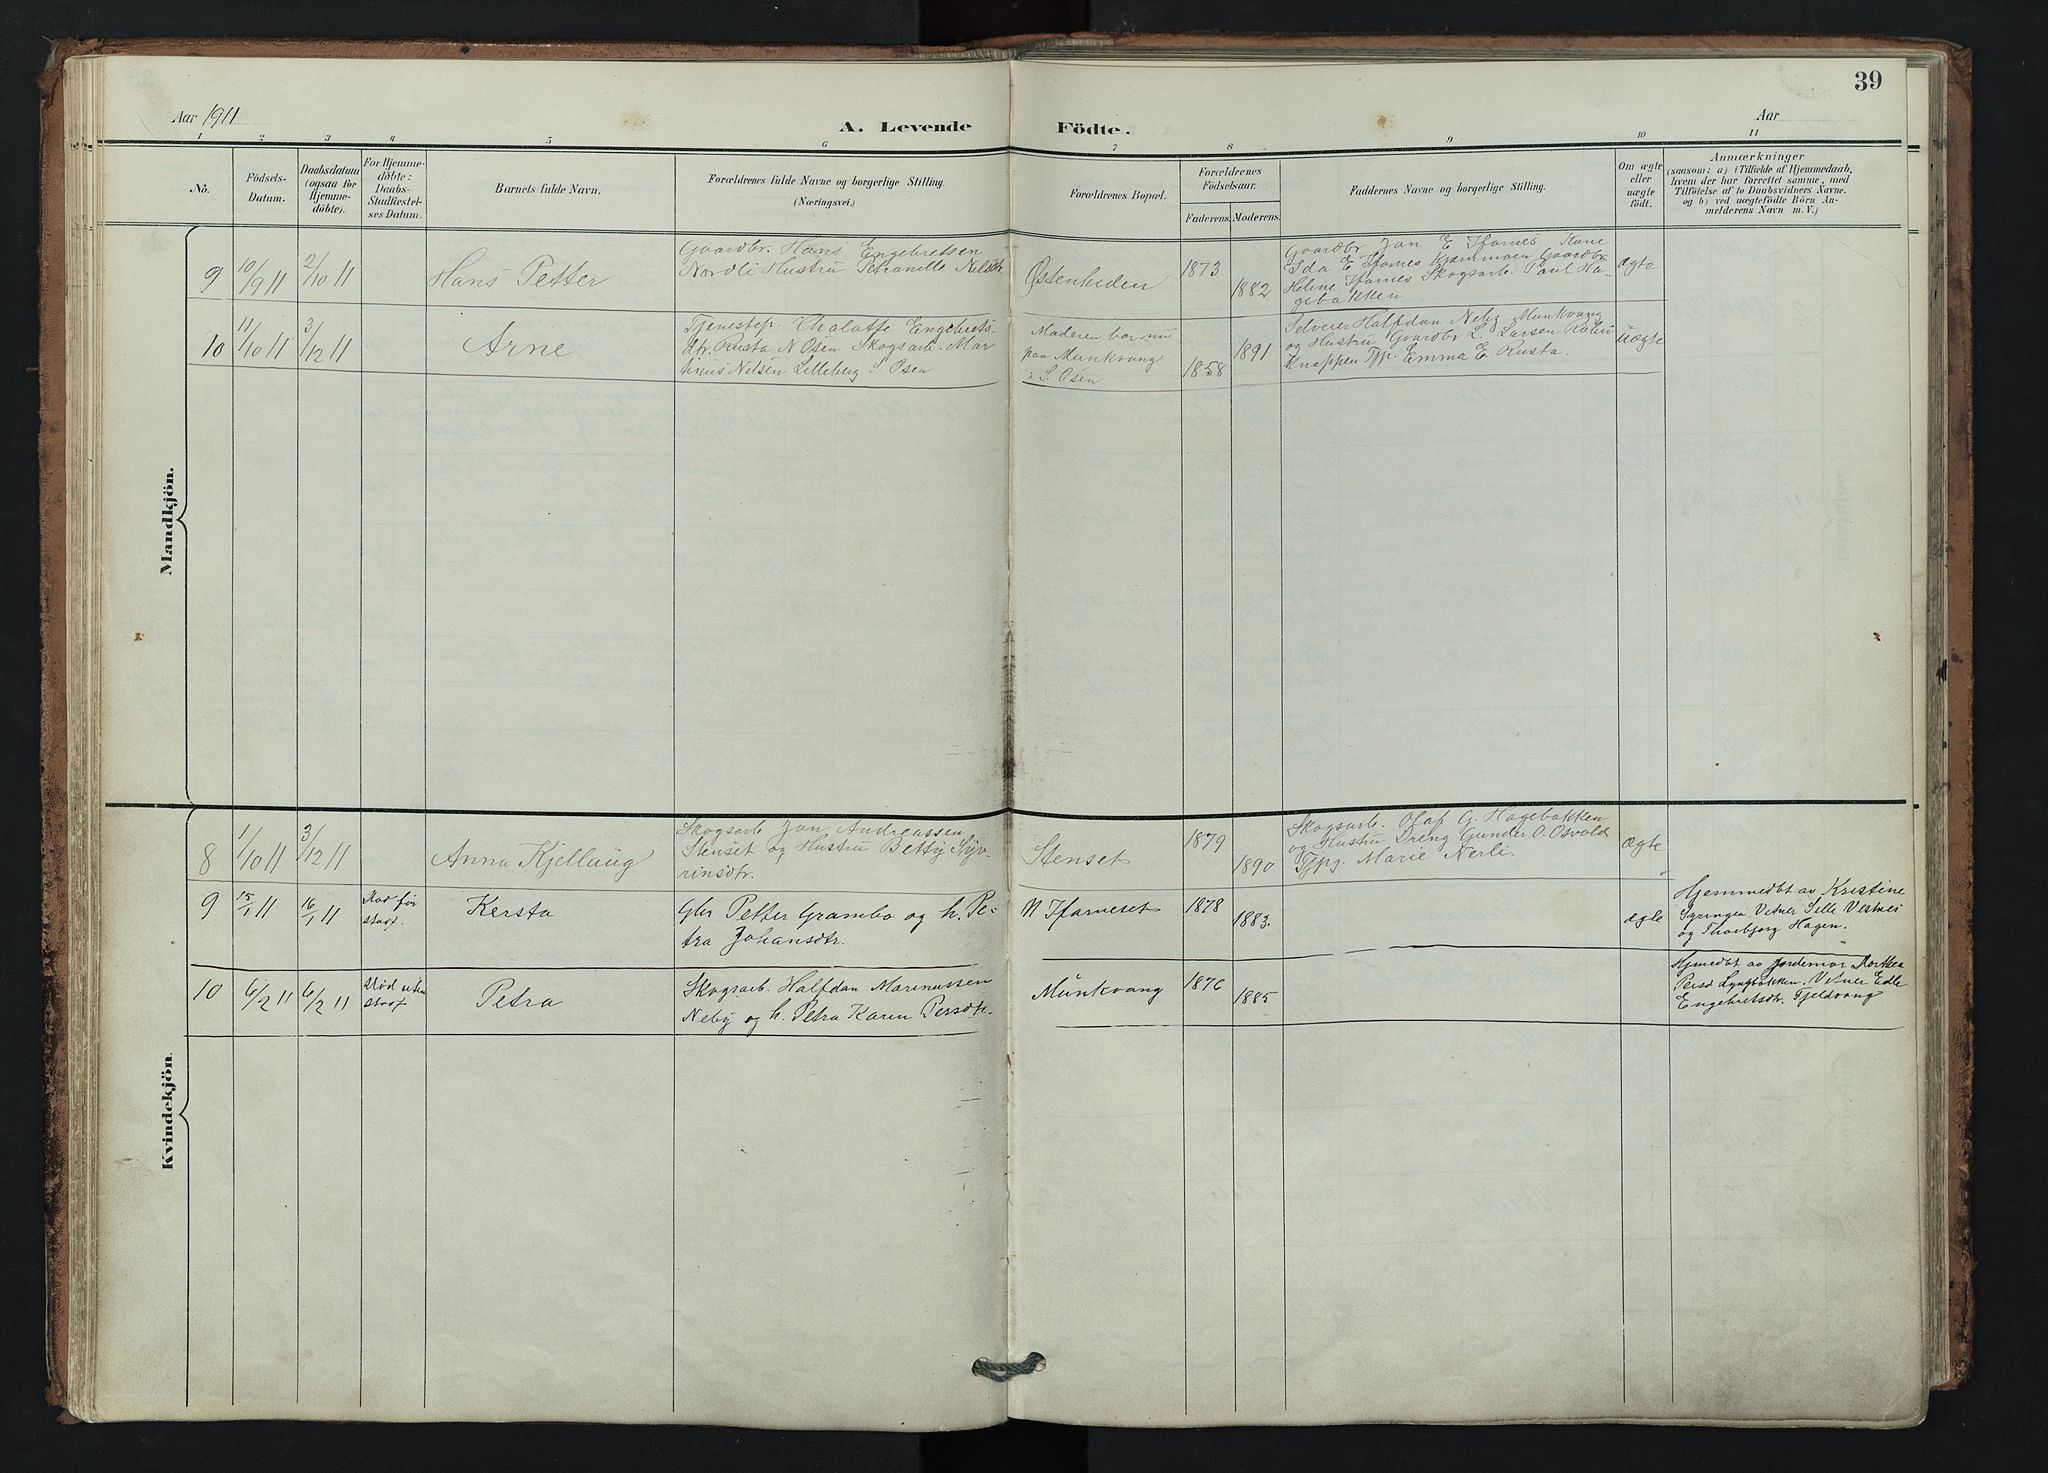 39
Aar 1911
A. Levende Födte.
Aar
1 2 3 4 5 6 7 8 9 10 11
No.
Födsels-
Datum.
Daabsdatum
(ogsaa for
Hjemme-
döbte).
For Hjemme-
döbte:
Daabs-
Stadfæstel-
ses Datum.
Barnets fulde Navn.
Forældrenes fulde Navne og borgerlige Stilling.
(Næringsvei.)
Forældrenes Bopæl.
Forældrenes
Födselsaar.
Faderens. Moderens.
Faddernes Navne og borgerlige Stilling.
Om ægte
eller
uægte
födt.
Anmærkninger
(saasom: a) i Tilfælde af Hjemmedaab,
hvem der har forrettet samme, med
Tilföielse af to Daabsvidners Navne.
og b) ved uægtefödte Börn An-
melderens Navn m. V.)
Mandkjön.
9
10/9 11
2/10 11
Hans Petter
Gaardbr. Hans Engebretsen
Nordli Hustru Petronille Nelsdtr.
Østenheden
1873
1882
Gaardbr Jon E Ifarnes Kone
Ida E Ifarnes Kjæmmoen Gaardbr
Helene Ifarnes Skogsarb. Paul Ha-
gebakken
ægte
10
11/10 11
3/12 11
Arne
Tjenestep. Chalotte Engebrets-
dtr. Rusta N Osen Skogsarb. Mar
tinus Nilsen Lilleberg S. Osen
Moderen bor nu
paa Munkvang
i S. Osen
1858
1891
Selveier Halfdan Neby Munkvang
og Hustru Gaardbr L. Larsen
Knappen Tjp. Emma E. Rusta.
uægte
Kvindekjön.
8
1/10 11
3/12 11
Anna Kjellaug
Skogsarb Jon Andreassen
Stenset og Hustru Betty Syv-
rinsdtr.
Stenset
1879
1890
Skogsarb. Olaf G. Hagebakken
og Hustru Dreng Gunder O. Osvold
Tjpg. Marie Nerli.
ægte
9
15/1 11
16/1 11
Død før
stadf.
Kersta
Gbr Petter Grambo og h. Pe-
tra Johansdtr.
N Ifarneset
1878
1883.
ægte
Hjemmedbt av Kristine
Syringen Vitner Sille Vestnes
og Thorbjørg Hagen.
10
6/2 11
6/2 11
død uten
stadf
Petra
Skogsarb. Halfdan Marinussen
Neby og h. Petra Karen Persdtr.
Munkvang
1876
1885
Hjmedbt av Jordemor Dorthea
Persd Lyngbakken. Vitner Edle
Engebretsdtr. Fjeldvang